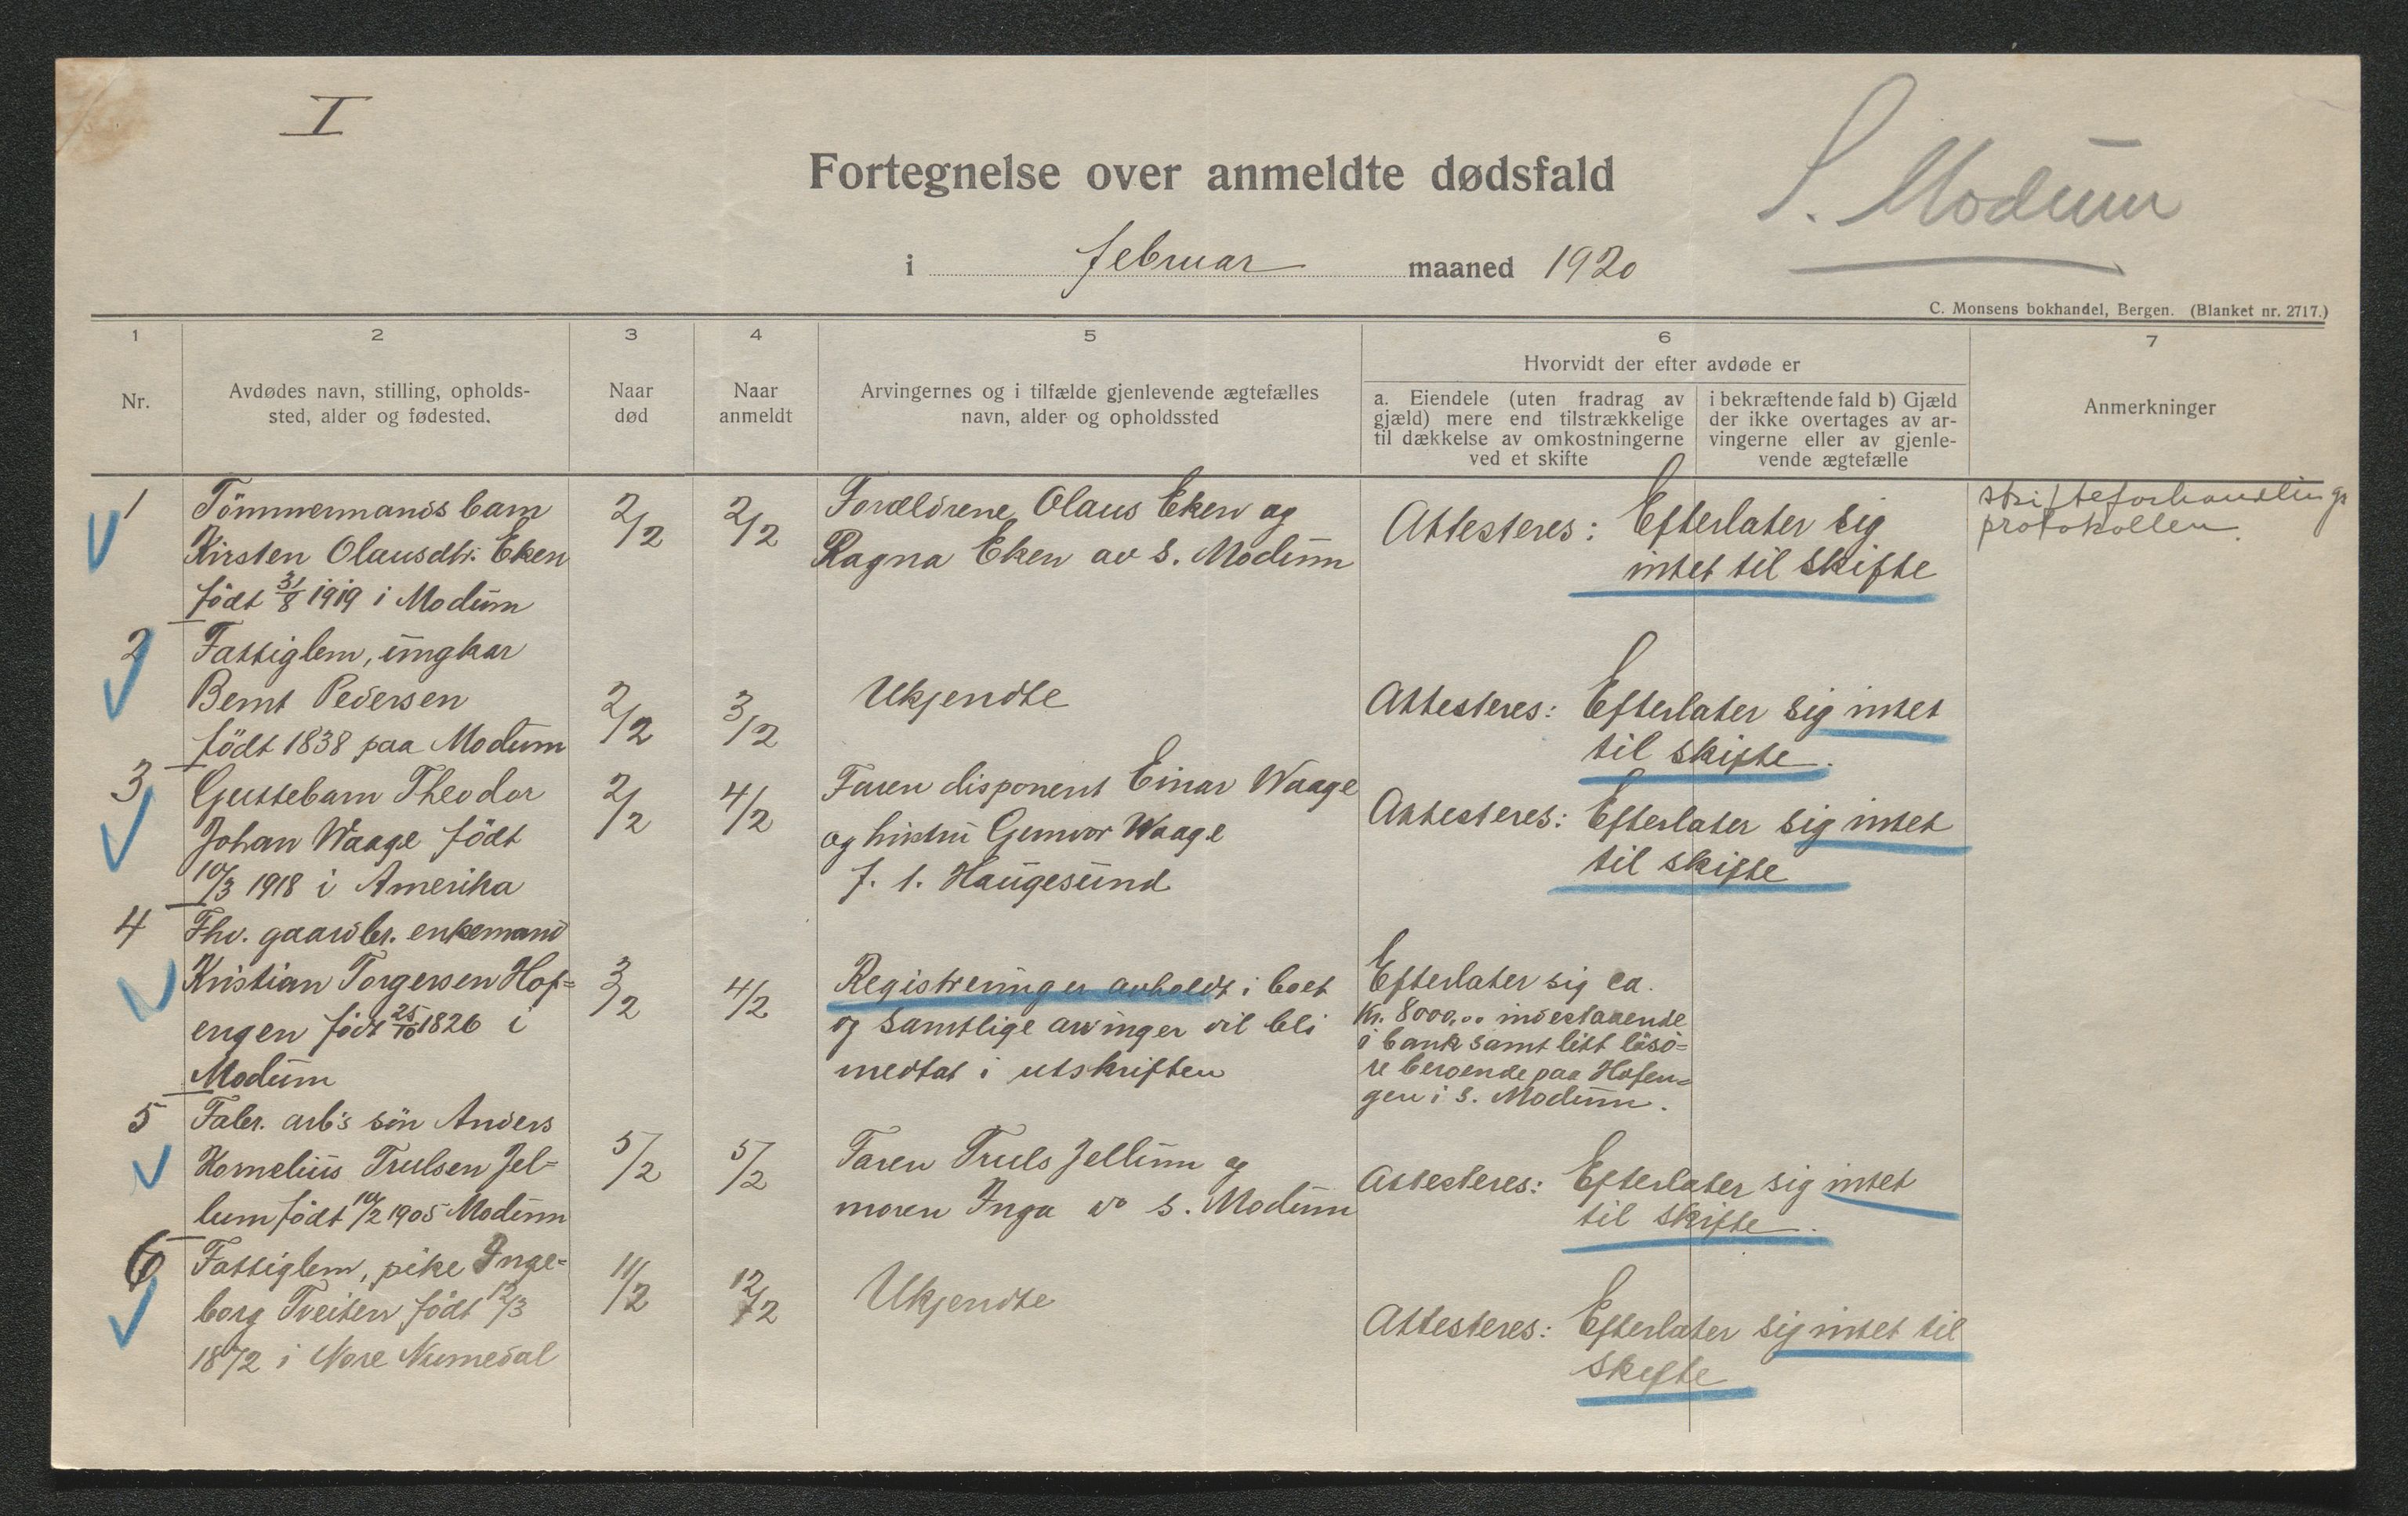 I
S. Modum
Fortegnelse over anmeldte dødsfald
i februar maaned 1920
C. Monsens bokhandel, Bergen. (Blanket nr. 2717.)
1
2
3
4
5
6
7
Nr.
Avdødes navn, stilling, opholds-
sted, alder og fødested.
Naar
død
Naar
anmeldt
Arvingernes og i tilfælde gjenlevende ægtefælles
navn, alder og opholdssted
Hvorvidt der efter avdøde er
a. Eiendele (uten fradrag av
gjæld) mere end tilstrækkelige
til dækkelse av omkostningerne
ved et skifte
i bekræftende fald b) Gjæld
der ikke overtages av ar-
vingerne eller av gjenle-
vende ægtefælle
Anmerkninger
1
Tömmermands barn
Kirsten Olausdtr. Eken
födt 31/8 1919 i Modum
2/2
2/2
Forældrene Olaus Eken og
Ragna Eken av S. Modum
Attesteres: Efterlater sig
intet til skifte
skifteforhandlings
protokollen.
2
Fattiglem, ungkar
Bernt Pedersen
födt 1838 paa Modum
2/2
3/2
Ukjendte
Attesteres: Efterlater sig intet
til skifte.
3
Guttebarn Theodor
Johan Waage födt
10/3 1918 i Amerika
2/2
4/2
Faren disponent Einar Waage
og hustru Gunvor Waage
f. t. Haugesund
Attesteres: Efterlater sig intet
til skifte
4
Fhv. gaardbr. enkemand
Kristian Torgersen Hof=
engen födt 25/10 1826 i
Modum
3/2
4/2
Registrering er avholdt i boet
og samtlige arvinger vil bli
medtat i utskriften
Efterlater sig ca.
Kr. 8000,00 indestaaende
i bank samt litt lösö=
re beroende paa Hofen=
gen i S. Modum.
5
Fabr. arb's sön Anders
Kornelius Trulsen Jel=
lum födt 10/2 1905 Modum
5/2
5/2
Faren Truls Jellum og
moren Inga do S. Modum
Attesteres: Efterlater sig intet
til skifte.
6
Fattiglem, pike Inge=
borg Tveiten födt 12/3
1872 i Nore Numedal
11/2
12/2
Ukjendte
Attesteres: Efterlater sig intet til
skifte